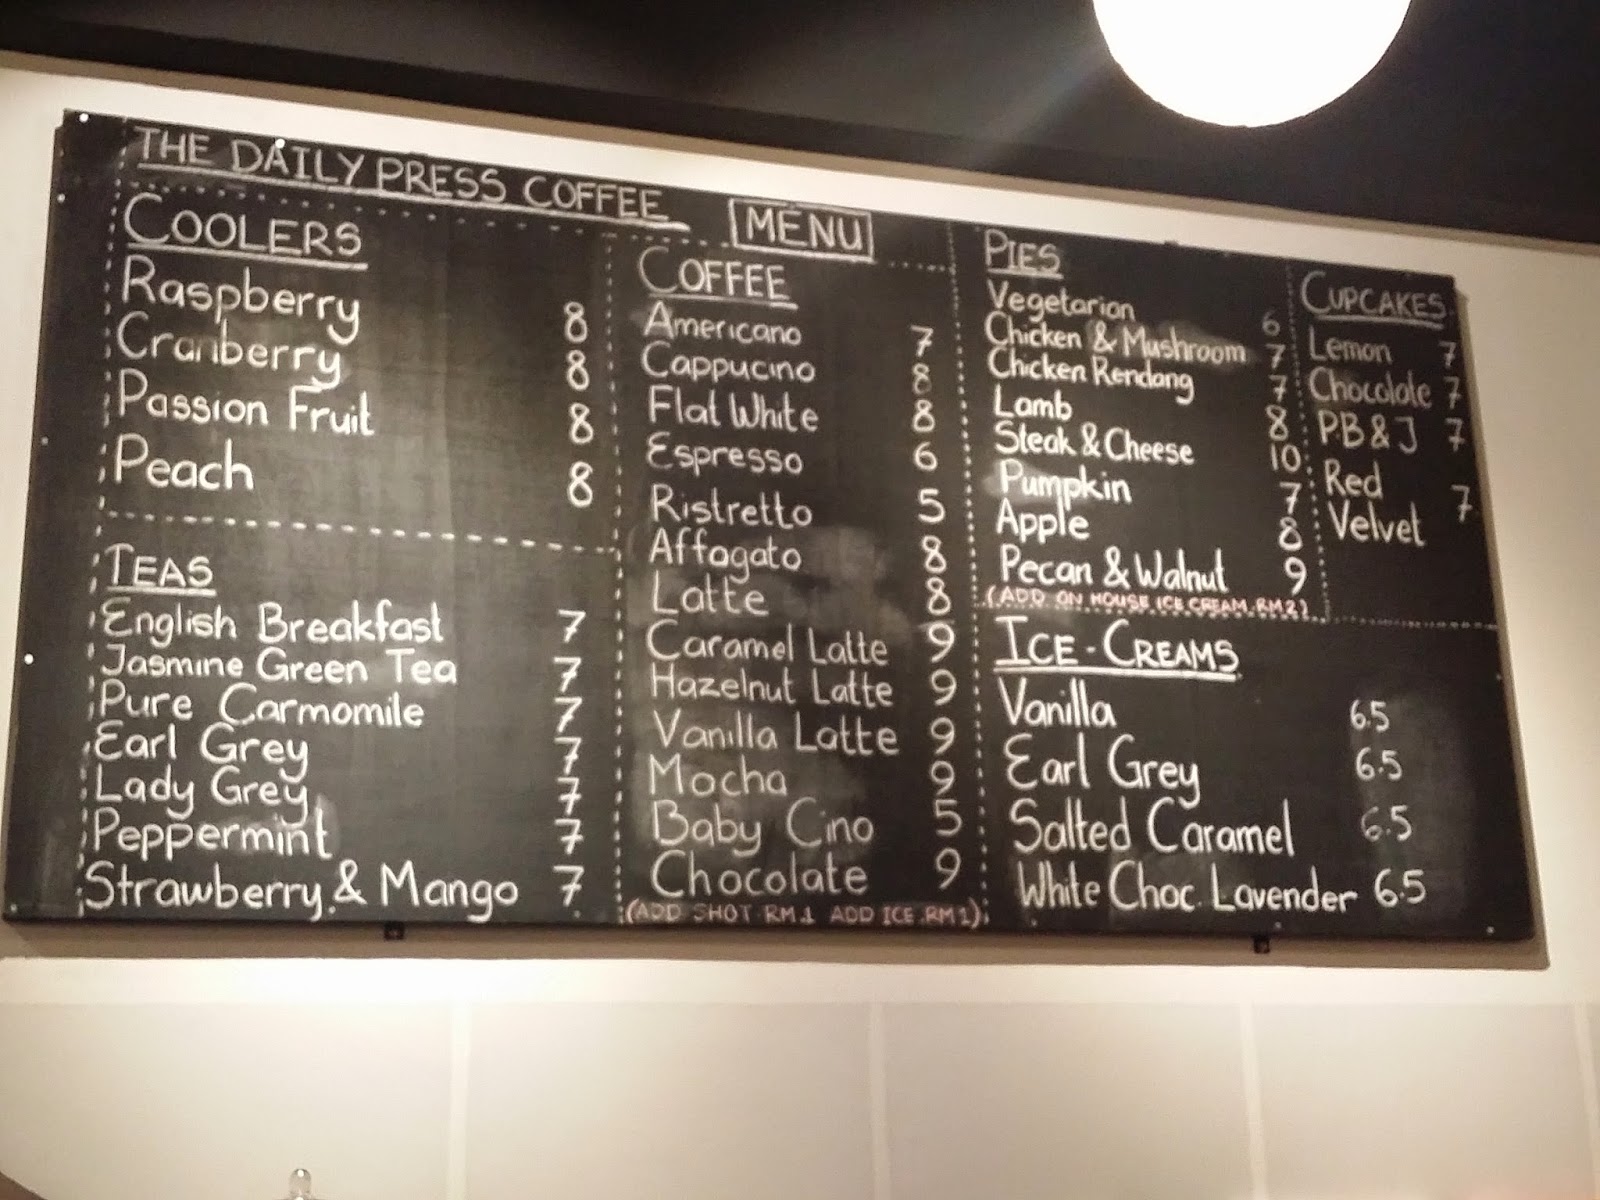 THE DAILY PRESS COFFEE
MENU
COOLERS
Raspberry 8
Cranberry 8
Passion Fruit 8
Peach 8
TEAS
English Breakfast 7
Jasmine Green Tea 7
Pure Carmomile 7
Earl Grey 7
Lady Grey 7
Peppermint 7
Strawberry & Mango 7
COFFEE
Americano 7
Cappucino 8
Flat White 8
Espresso 6
Ristretto 5
Affogato 8
Latte 8
Caramel Latte 9
Hazelnut Latte 9
Vanilla Latte 9
Mocha 9
Baby Cino 5
Chocolate 9
(ADD SHOT RM1 ADD ICE RM1)
PIES
Vegetarian 6
Chicken & Mushroom 7
Chicken Rendang 7
Lamb 8
Steak & Cheese 10
Pumpkin 7
Apple 8
Pecan & Walnut 9
(ADD ON HOUSE ICE CREAM RM2)
CUPCAKES
Lemon 7
Chocolate 7
PB & J 7
Red
Velvet 7
ICE-CREAMS
Vanilla 6.5
Earl Grey 6.5
Salted Caramel 6.5
White Choc. Lavender 6.5